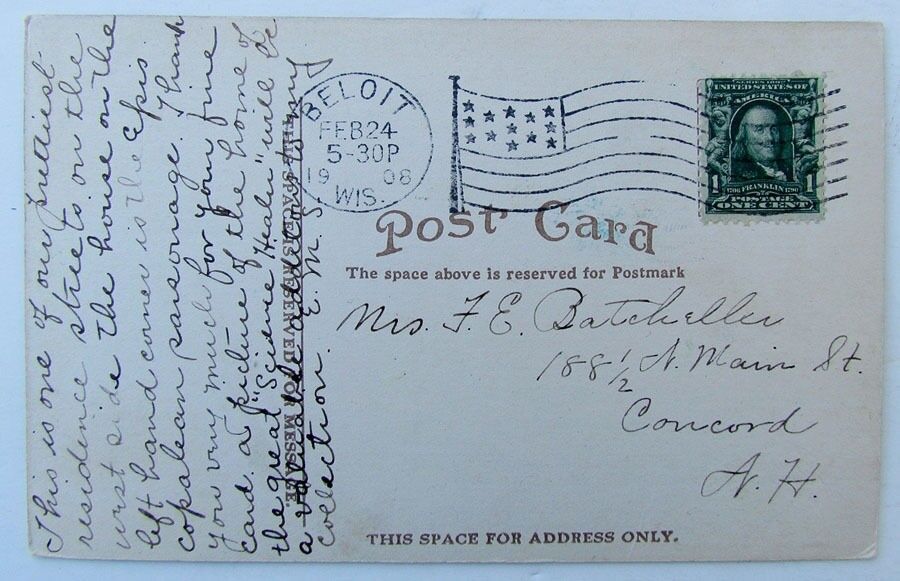 This is one of our prettiest
residence streets on the
west side the house on the
left hand corner is the Epis
copalean parsonage. Thank
you very much for your fine
card. a picture of the home of
the great "Science Healer" will be
a valuable addition to my
collection. E. M. S.
THIS SPACE IS RESERVED FOR MESSAGE.
BELOIT
FEB 24
5-30P
1908
WIS.
SERIES 1902
UNITED STATES OF
AMERICA
1 1
1706 FRANKLIN 1790
POSTAGE
ONE CENT
Post Card
The space above is reserved for Postmark
Mrs. F. E. Batcheller
188 1/2 N. Main St.
Concord
N. H.
THIS SPACE FOR ADDRESS ONLY.